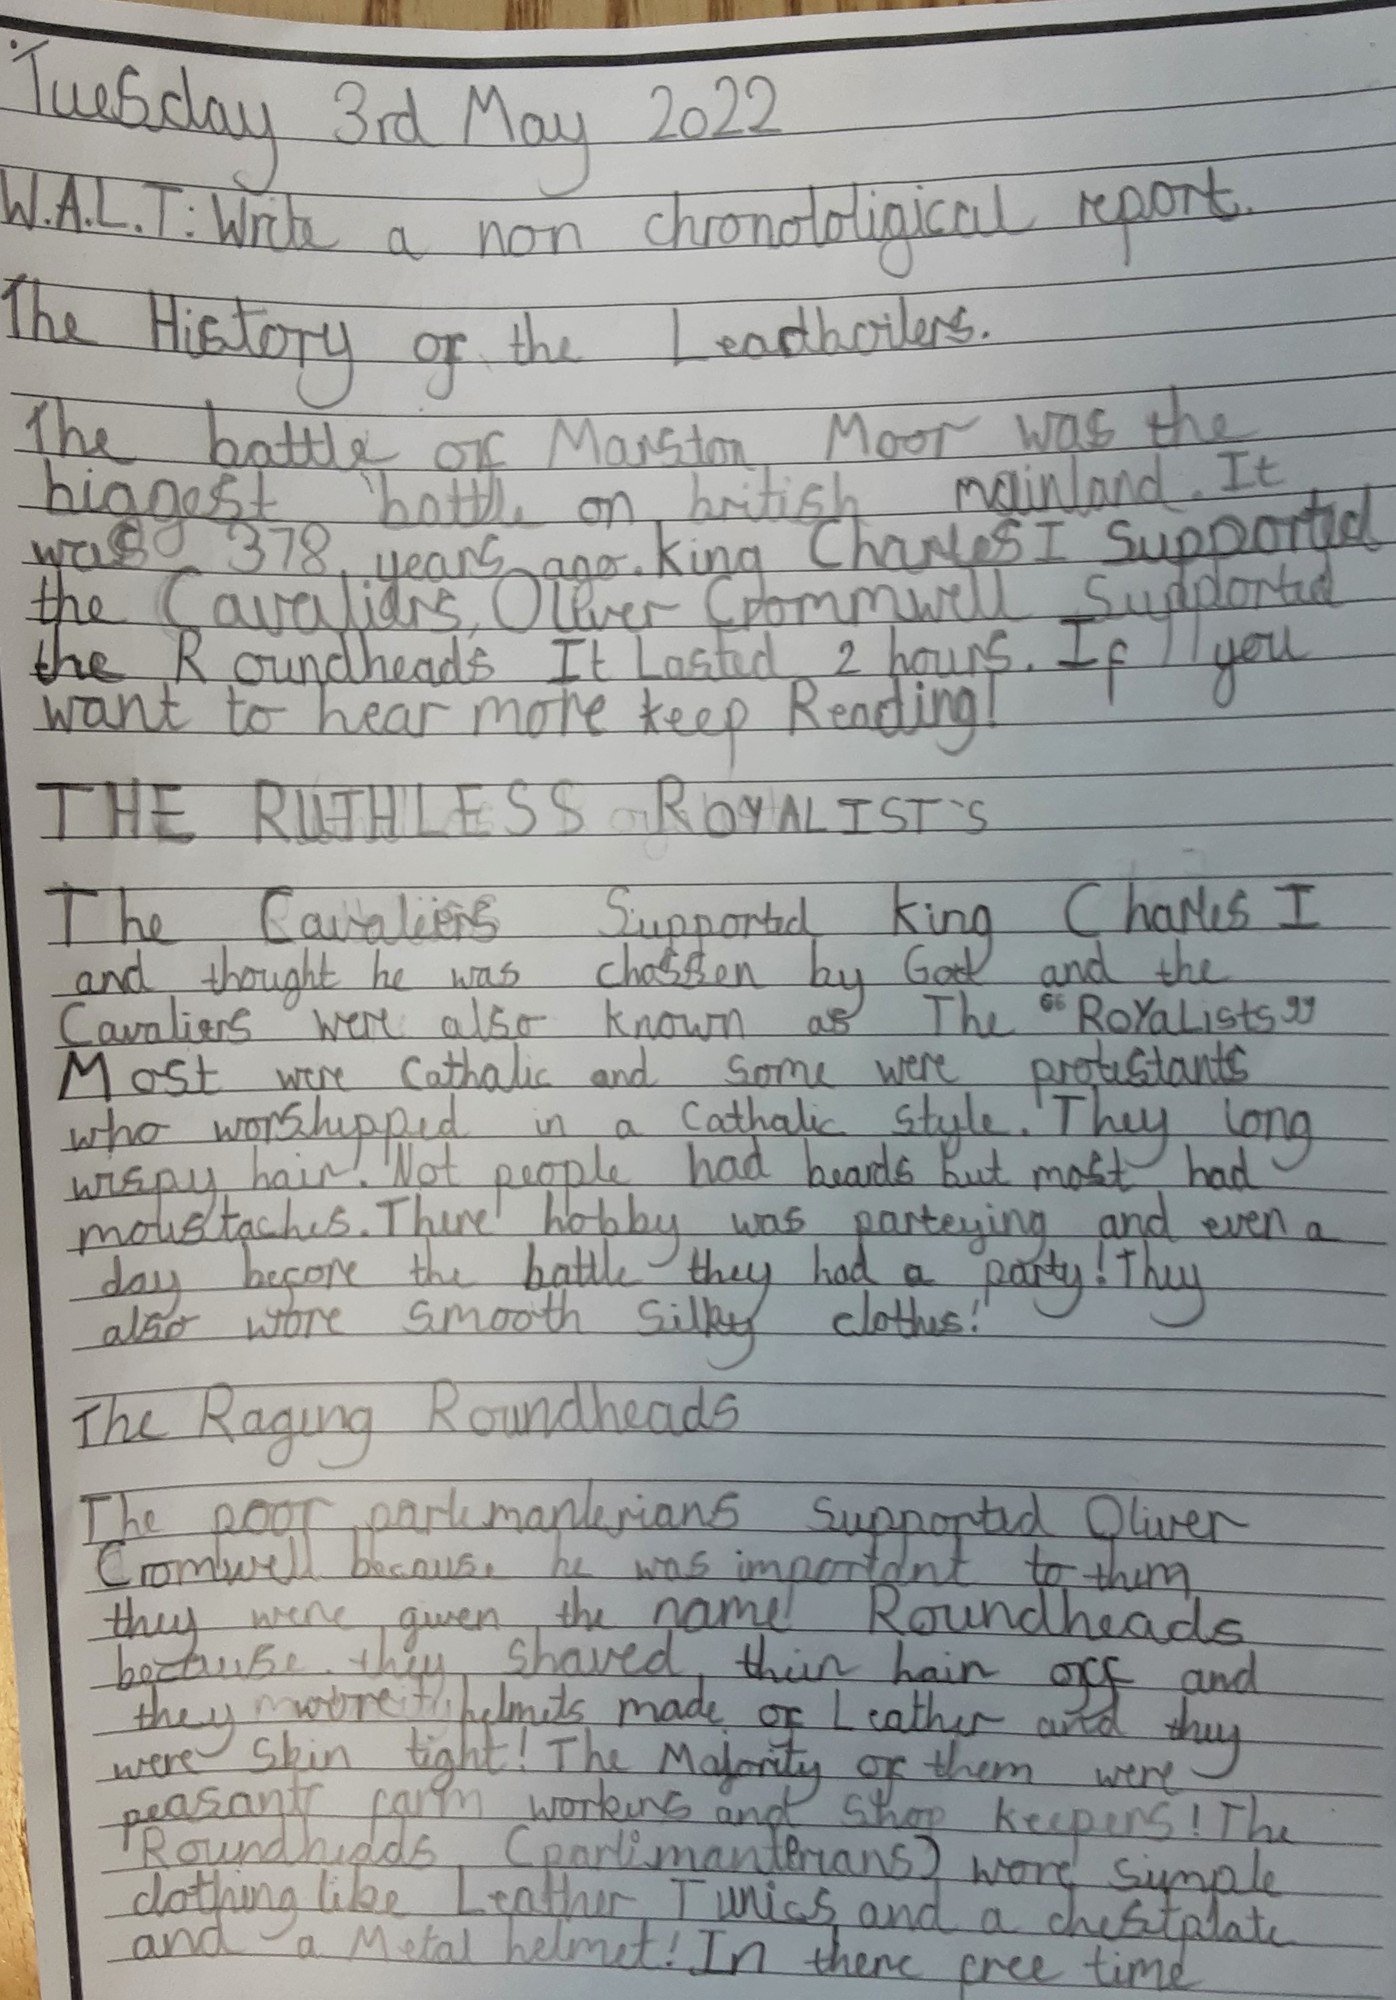 Tuesday 3rd May 2022
W.A.L.T: Write a non chronololigical report.
The History of the Leadboilers.
The battle of Marston Moor was the
biggest battle on british mainland. It
was 378 years ago. King Charles I Supported
the Cavaliars, Oliver Crommwell Supported
the Roundheads It Lasted 2 hours. If you
want to hear more keep Reading!
THE RUTHLESS ROYALIST'S
The Cavaliers Supported king Charles I
and thought he was chossen by God and the
Cavaliers were also known as The "RoYaLists"
Most were Cathalic and some were protestants
who worshipped in a Cathalic style. They long
wispy hair! Not people had beards but most had
moustaches. There hobby was parteying and even a
day before the battle they had a party! They
also wore smooth silky clothes!
The Raging Roundheads
The poor parlimanterians supported Oliver
Cromwell because he was important to them
they were given the name Roundheads
because they shaved their hair off and
they wore helmets made of Leather and they
were skin tight! The Majority of them were
peasants farm workers and shop keepers! The
Roundheads (parlimanterians) wore simple
clothing like Leather Tunics and a chestplate
and a Metal helmet! In there free time